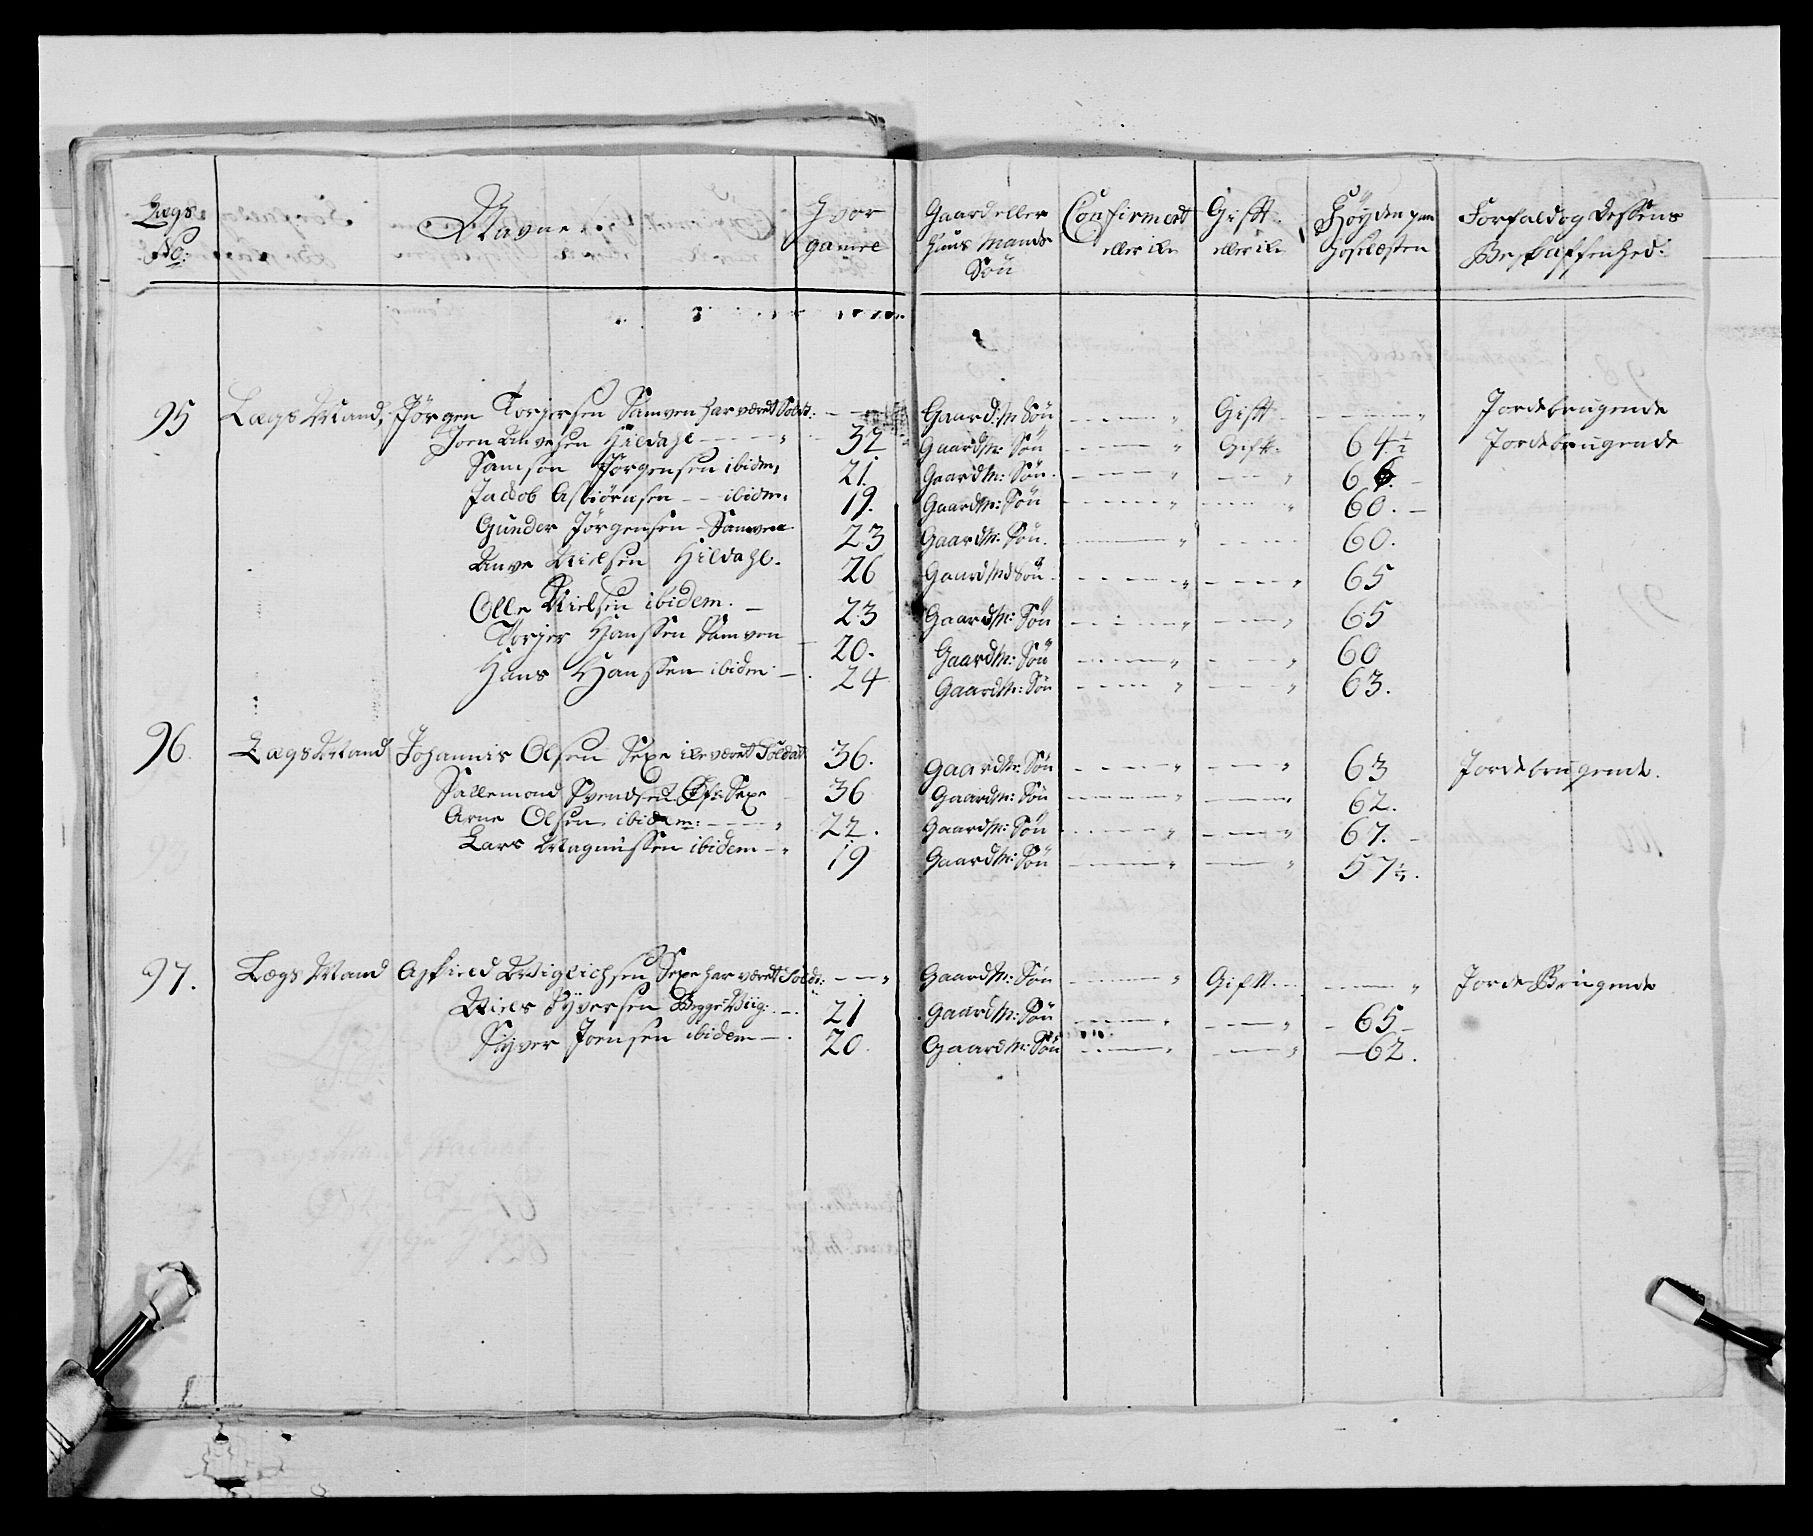 Lægs No: | Navne | Hvor gamle | Gaard eller Huus Mands Søn | Confirmert eller ike | Gifft eller ike | Høyden paa Hoselæsten | Forfald og dessens Beskaffenhed:
95 Lægs Mand, Jørgen Torgersen Samven har været Soldt: — Gaard: M Søn — " Gifft — " Jordebrugende
Joen Anvesen Hildahl — " 32 Gaardm: Søn — " Gift. 64½ Jordebrugende
Samson Torgensen ibidm, 21. Gaardm: Søn. — " — " 66. —
Jackob Asbiørnsen — ibidem: 19. Gaardm: Søn — " 60. —
Gunder Jørgensen — Samven 23 Gaardm: Søn. — 60.
Anve Nielsen Hildahl. 26 Gaardmd Søn — " — " 65
Olle Nielsen ibidem. — 23 Gaardm: Søn — " — " 65
Torger Hanssen Samven — 20. Gaardm: Søn — " — " 60
Hans Hanssen ibidem — 24 Gaardm: Søn — " — " 63.
96. Lægs Mand Johannis Olsen Sexe ike været Soldat 36. Gaardm: Søn — " — " 63 Jordebrugende.
Sallemond Svendsen Sexe 36 Gaardm: Søn — " — " 62.
Arne Olsen ibidem: — " 22. Gaardm: Søn — " — " 67. —
Lars Magnussen ibidem — " 19 Gaardm: Søn — " — " 57½.
97. Lægs Mand Asfield Miglichsen Sexe har været Soldt: — " Gaardm: Søn — " Gifft. — " Jorde Brugende
Niels Syversen 21 Gaardm: Søn — " — " 65 —
Syver Joensen ibidem — 20. Gaardm: Søn — " — " 62.